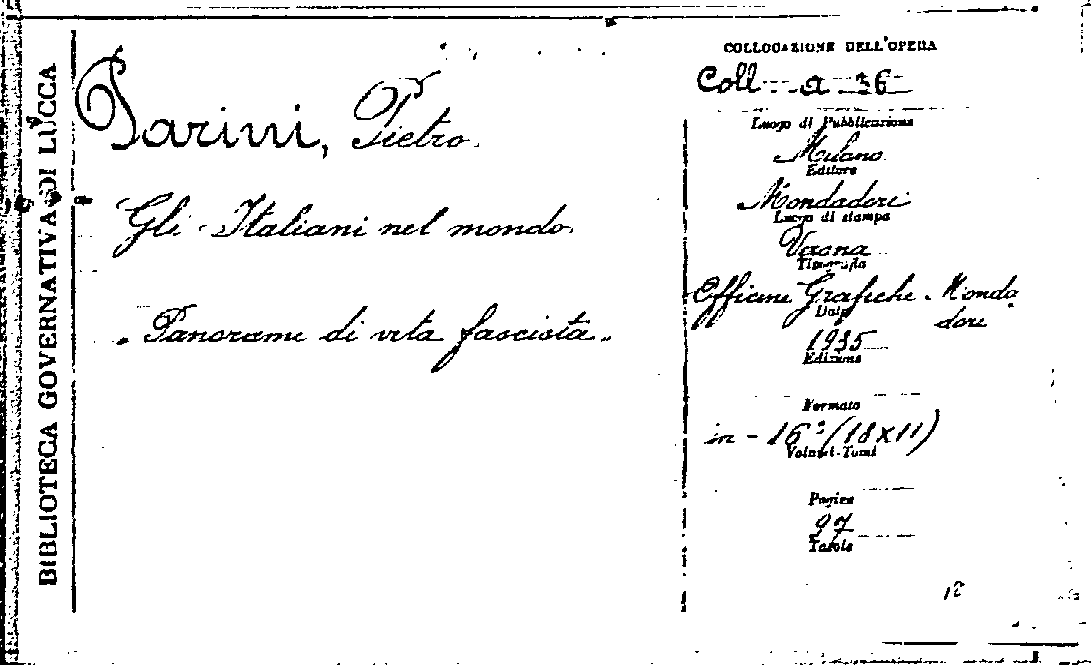 BIBLIOTECA GOVERNATIVA DI LUCCA
Parini, Pietro.
Gli Italiani nel mondo.
"Panorami di vita fascista"
COLLOCAZIONE DELL'OPERA
Coll. a 36
Luogo di Pubblicazione
Milano
Editore
Mondadori
Luogo di stampa
Verona
Tipografia
Officine Grafiche Monda
dori
Data
1935
Edizione
Formato
in-16° (18x11)
Volumi-Tomi
Pagine
97
Tavole